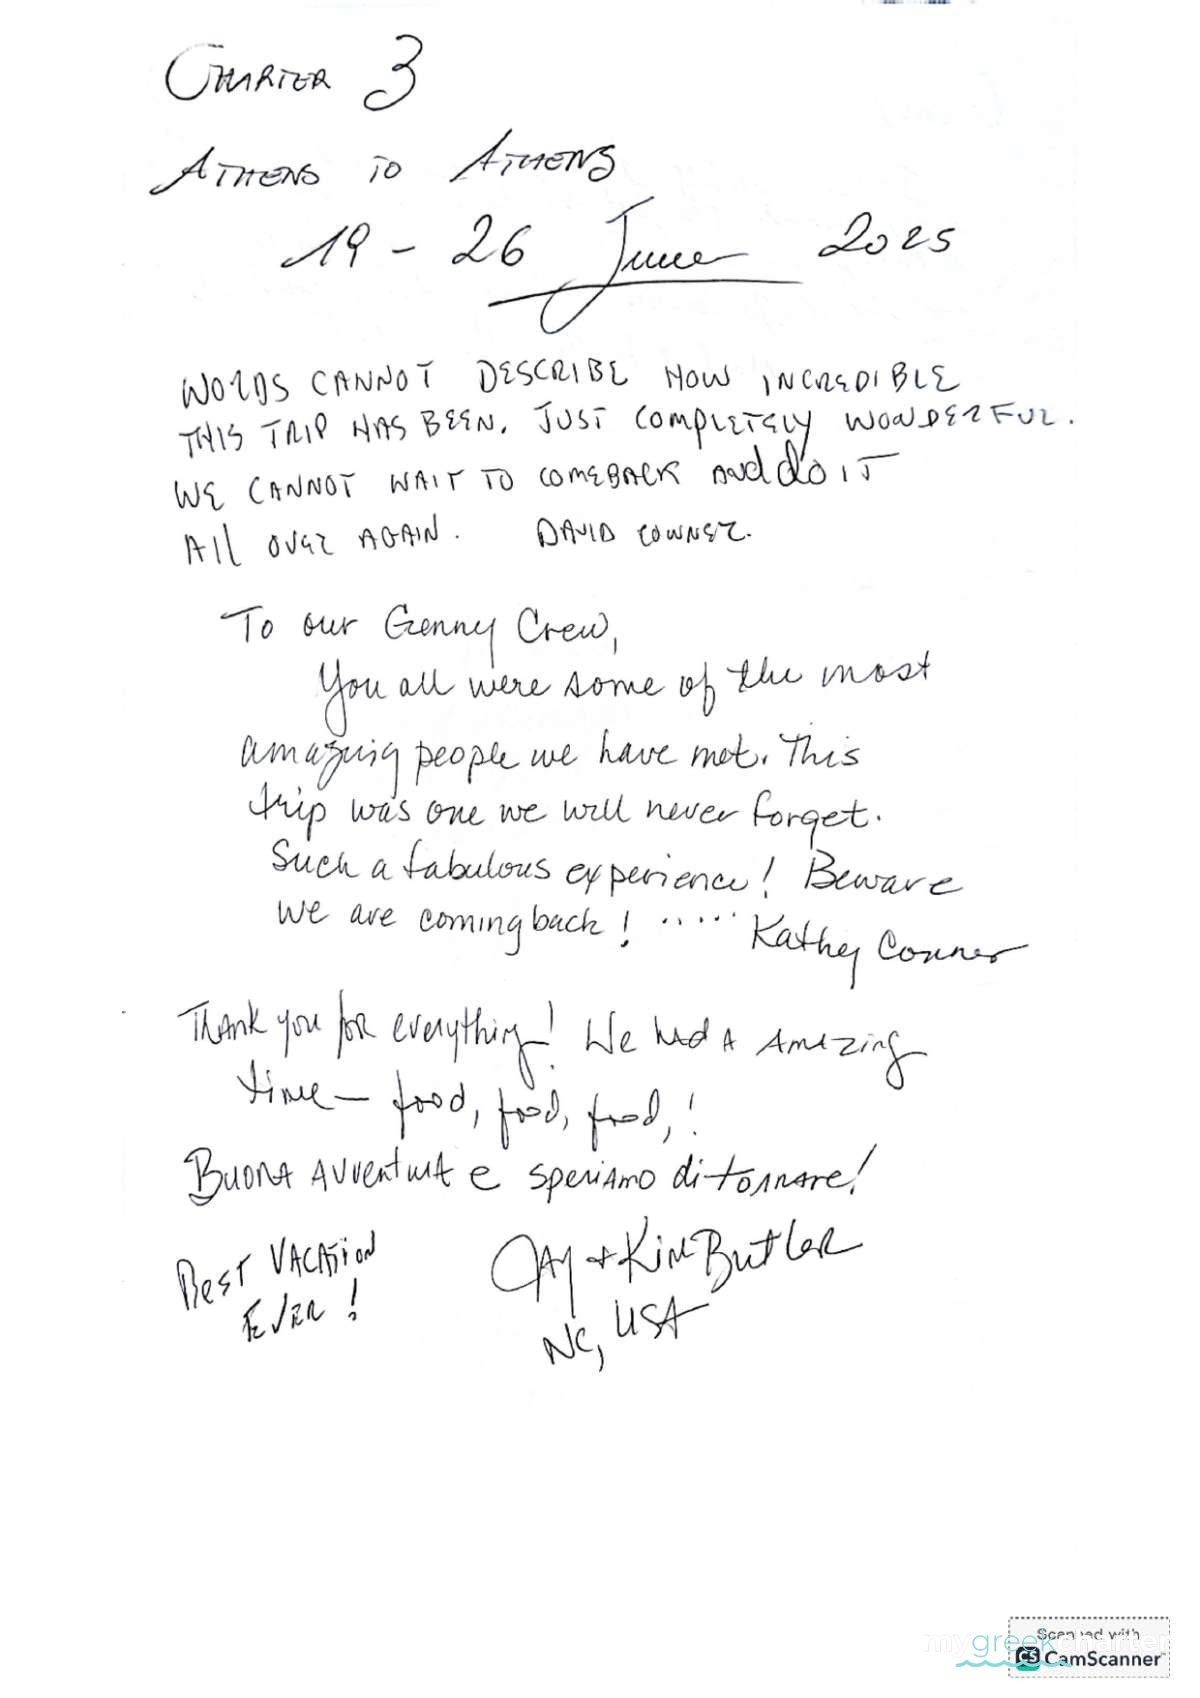 CHARTER 3
ATHENS TO ATHENS
19 - 26 June 2025
WORDS CANNOT DESCRIBE HOW INCREDIBLE
THIS TRIP HAS BEEN. JUST COMPLETELY WONDERFUL.
WE CANNOT WAIT TO COMEBACK AND do IT
All OVER AGAIN. DAVID CONNER.
To our Genny Crew,
You all were some of the most
amazing people we have met. This
trip was one we will never forget.
Such a fabulous experience! Beware
we are coming back! ..... Kathy Conner
Thank you for everything! We had A AMAZING
time - food, food, food,!
Buona Avventura e speriamo di tornare!
Best VACATION
EVER!
JAY + Kim Butler
NC, USA
Scanned with
mygreekcharter
CS CamScanner